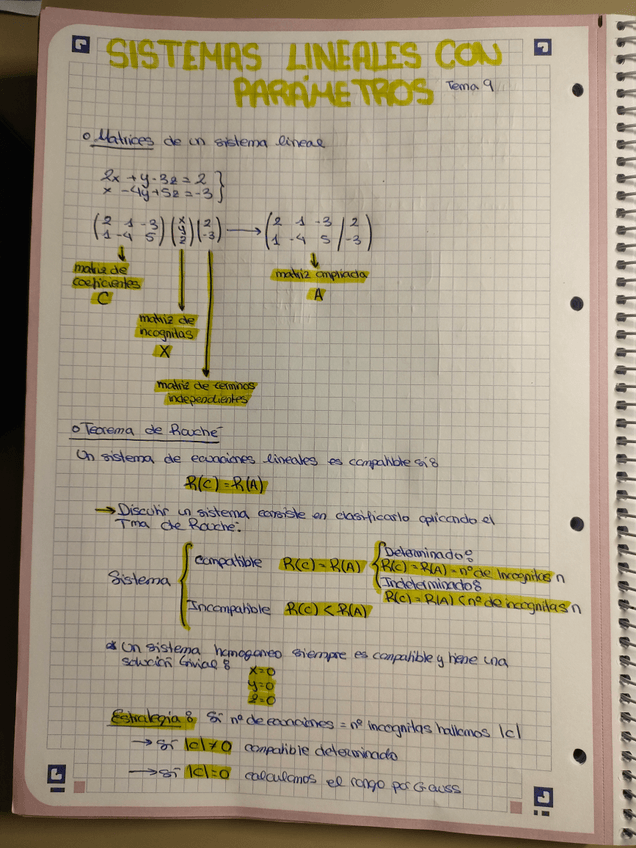 SISTEMAS LINEALES CON
PARÁMETROS Tema 9
o Matrices de un sistema lineal
2x + y - 3z = 2 }
x - 4y + 5z = -3
(2 1 -3) (x) (2) → (2 1 -3 / 2)
(1 -4 5) (y) (-3) (1 -4 5 / -3)
z
matriz de
coeficientes
C
matriz ampliada
A
matriz de
incognitas
X
matriz de terminos
independientes
o Teorema de Rouché
Un sistema de ecuaciones lineales es compatible si:
R(C) = R(A)
→ Discutir un sistema consiste en clasificarlo aplicando el
Tma de Rouché:
Sistema
Compatible R(C) = R(A)
Determinado:
R(C) = R(A) = nº de Incognitas n
Indeterminado:
R(C) = R(A) < nº de incognitas n
Incompatible R(C) < R(A)
* Un sistema homogeneo siempre es compatible y tiene una
solución trivial:
x=0
y=0
z=0
Estrategia: Si nº de ecuaciones = nº incognitas hallamos |C|
→ Si |C| ≠ 0 compatible determinado
→ Si |C| = 0 calculamos el rango por Gauss